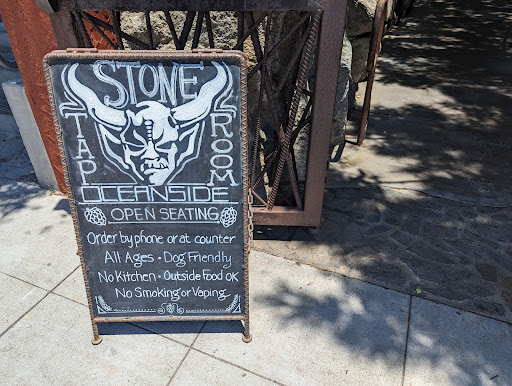 STONE
TAP
ROOM
OCEANSIDE
OPEN SEATING
Order by phone or at counter
All Ages • Dog Friendly
No Kitchen • Outside Food OK
No Smoking or Vaping